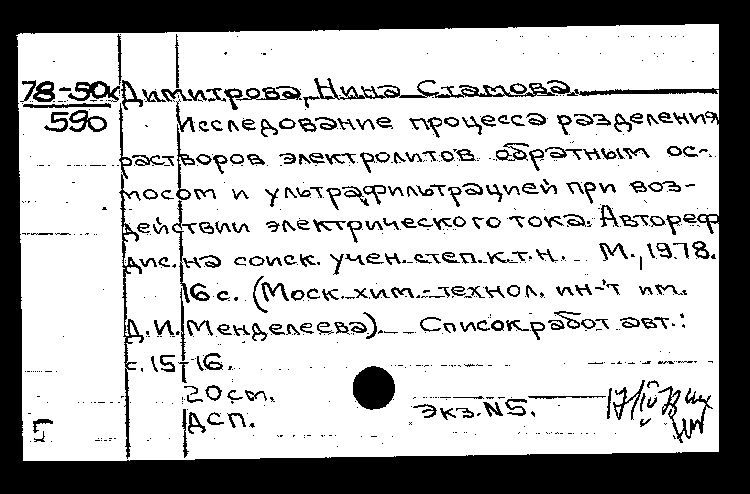 78-50к Димитрова, Нина Стамова.
590 Исследование процесса разделения
растворов электролитов обратным ос-
мосом и ультрафильтрацией при воз-
действии электрического тока. Автореф
дис. на соиск. учен. степ. к.т.н. М., 1978.
16 с. (Моск. хим.-технол. ин-т им.
Д.И. Менделеева). Список работ авт.:
с. 15-16.
20 см.
ДСП. Экз. N5.
5